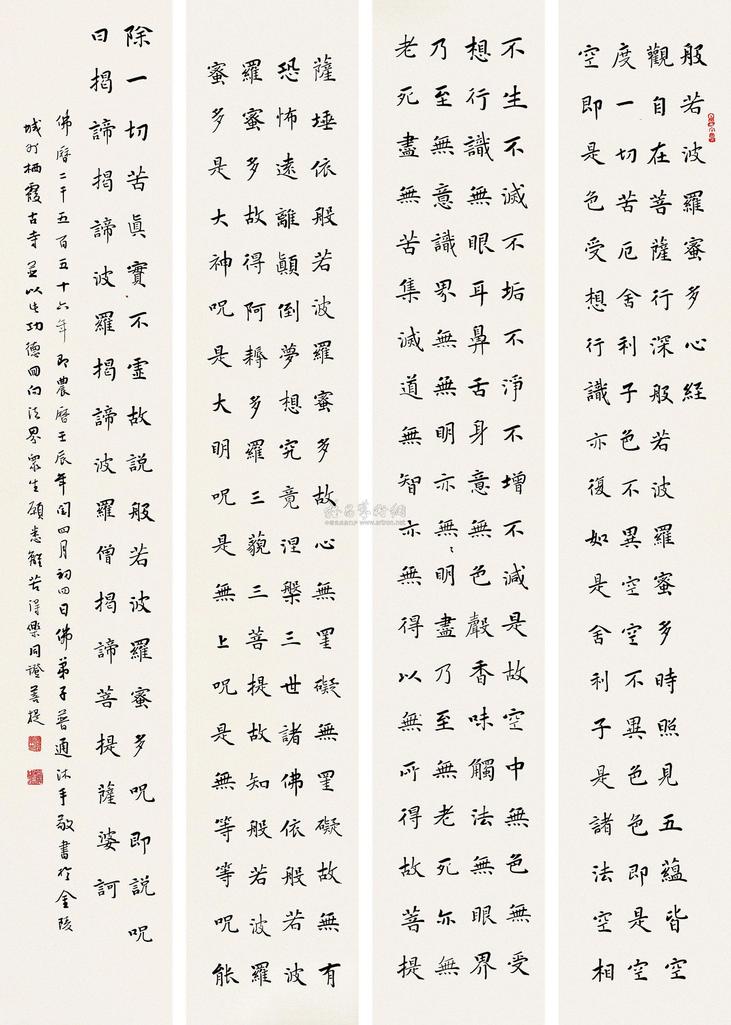 般若波羅蜜多心經
觀自在菩薩行深般若波羅蜜多時照見五蘊皆空
度一切苦厄舍利子色不異空空不異色色即是空
空即是色受想行識亦復如是舍利子是諸法空相
不生不滅不垢不淨不增不減是故空中無色無受
想行識無眼耳鼻舌身意無色聲香味觸法無眼界
乃至無意識界無無明亦無〻明盡乃至無老死亦無
老死盡無苦集滅道無智亦無得以無所得故菩提
薩埵依般若波羅蜜多故心無罣礙無罣礙故無有
恐怖遠離顛倒夢想究竟涅槃三世諸佛依般若波
羅蜜多故得阿耨多羅三藐三菩提故知般若波羅
蜜多是大神呪是大明呪是無上呪是無等等呪能
除一切苦真實不虛故說般若波羅蜜多呪即說呪
曰揭諦揭諦波羅揭諦波羅僧揭諦菩提薩婆訶
佛曆二千五百五十六年即農曆壬辰年閏四月初四日佛弟子普通沐手敬書於金陵
城外栖霞古寺並以此功德回向法界眾生願悉離苦得樂同證菩提
www.artron.net